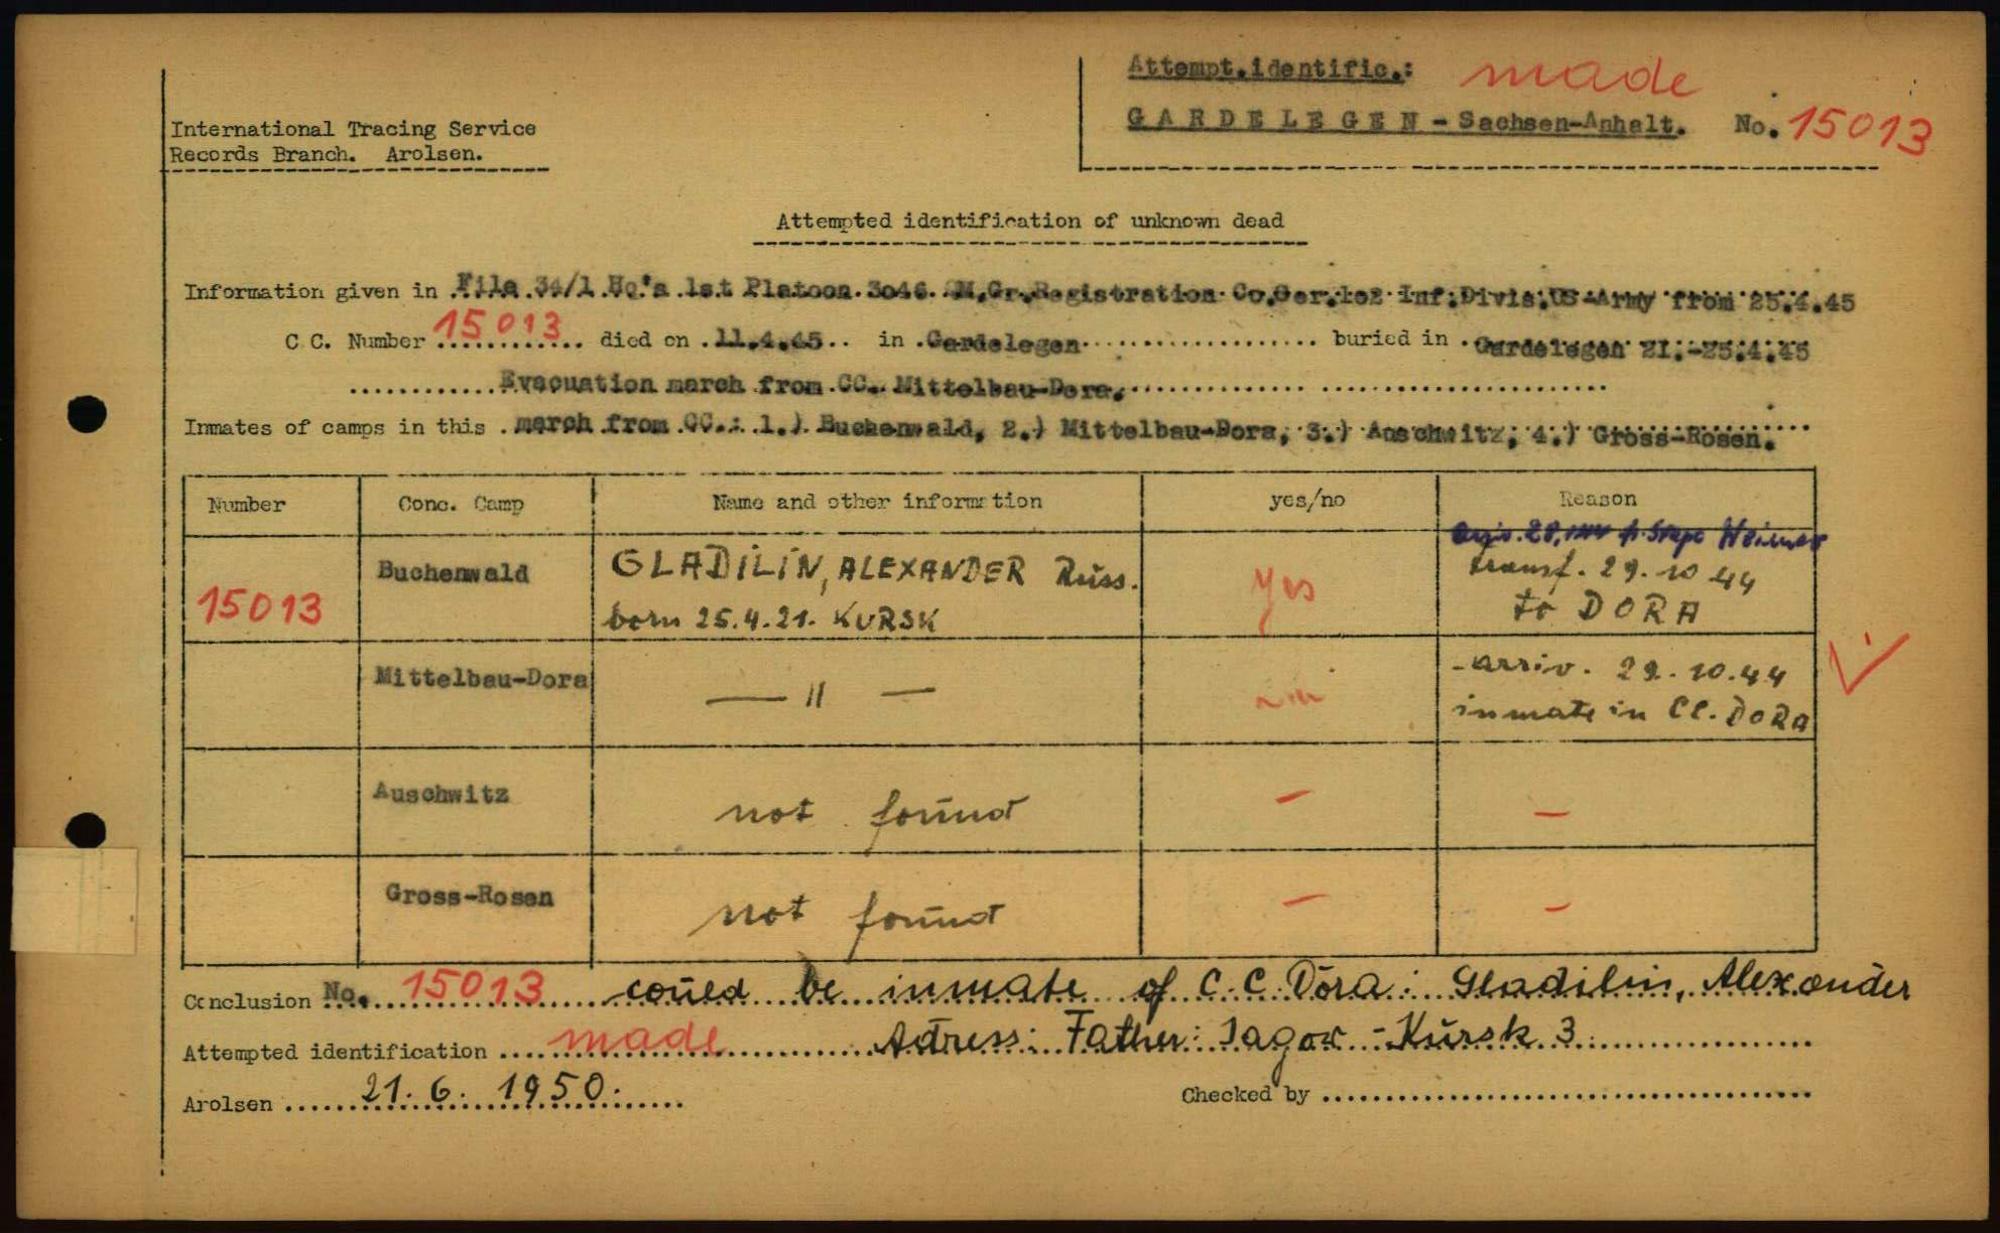 Attempt.identific.: made
GARDELEGEN - Sachsen-Anhalt. No. 15013
International Tracing Service
Records Branch. Arolsen.
Attempted identification of unknown dead
Information given in File 34/1 Hq's 1st Platoon 3046 Gr.Registration Co, 102 Inf.Divis.US-Army from 25.4.45
C C. Number 15013 died on 11.4.45 in Gardelegen buried in Gardelegen 21.-25.4.45
Evacuation march from CC. Mittelbau-Dora.
Inmates of camps in this march from CC.: 1.) Buchenwald, 2.) Mittelbau-Dora, 3.) Auschwitz, 4.) Gross-Rosen.
Number Conc. Camp Name and other information yes/no Reason
15013 Buchenwald GLADILIN, ALEXANDER Russ. yes
born 25.4.21. KURSK
transf. 29.10 44
to DORA
Mittelbau-Dora — " —
-arriv. 29.10.44
inmate in CC. DORA
Auschwitz not found - -
Gross-Rosen not found - -
Conclusion No. 15013 could be inmate of C.C. Dora: Gladilin, Alexander
Attempted identification made Adress: Father: Jagor - Kursk 3
Arolsen 21. 6. 1950. Checked by